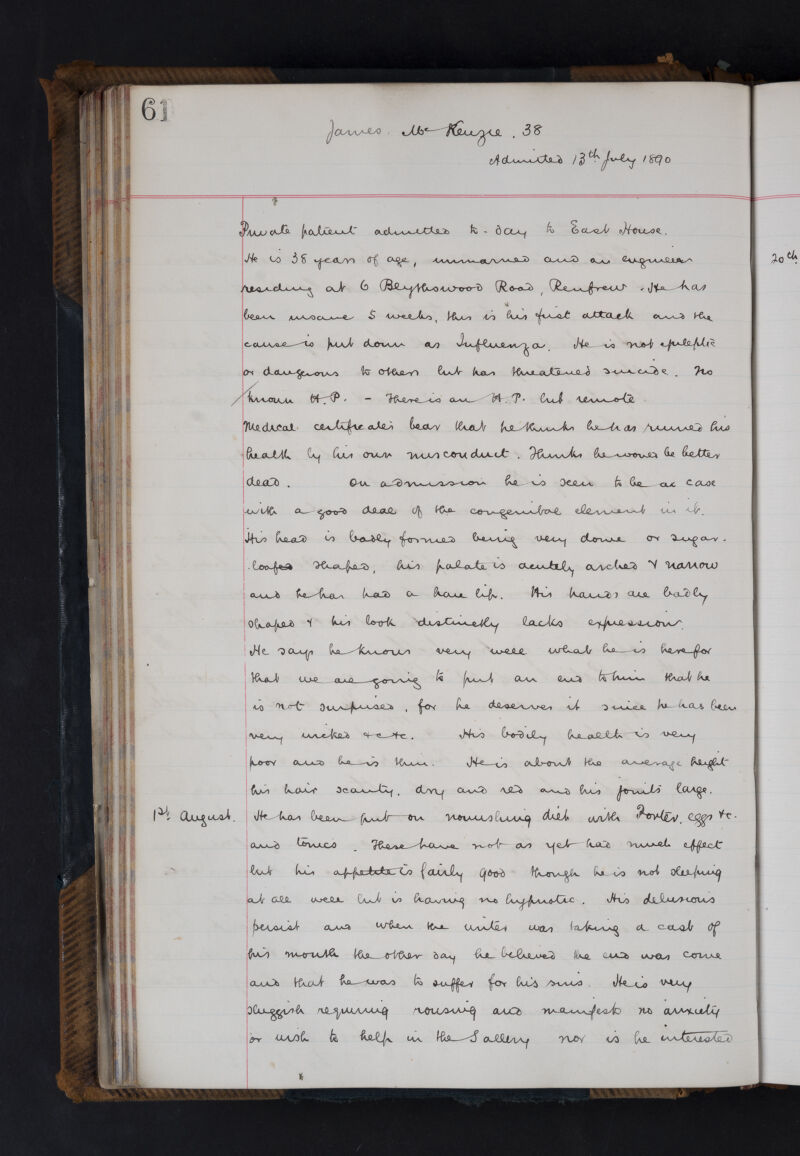 61
James McKenzie. 38
Admitted 13th July 1890
Private patient admitted to-day to East House.
He is 38 years of age, unmarried and an engineer
residing at 6 Blythswood Road, Renfrew. He has
been insane 5 weeks, this is his first attack and the
cause is put down as Influenza. He is not epileptic
or dangerous to others but has threatened suicide. No
known H.P. - There is an H.P. but remote.
Medical certificates bear that he thinks he has ruined his
health by his own misconduct. Thinks he would be better
dead. On admission he is seen to be a case
with a good deal of the congenital element in it.
His head is badly formed being very dome or sugar-
loafed shaped, his palate is acutely arched & narrow
and he has had a hare lip. His hands are badly
shaped & his look distinctly lacks expression.
He says he knows very well what he is here for
that we are going to put an end to him that he
is not surprised, for he deserves it since he has been
very wicked &c &c. His bodily health is very
poor and he is thin. He is about the average height
his hair scanty, dry and red and his joints large.
1st August. He has been put on nourishing diet with Porter, eggs &c.
and tonics. These have not as yet had much effect
but his appetite is fairly good though he is not sleeping
at all well but is having no hypnotic. His delusions
persist and when the writer was taking a cast of
his mouth the other day he believed the end was come
and that he was to suffer for his sins. He is very
sluggish requiring rousing and manifests no anxiety
or wish to help in the Gallery nor is he interested
20th